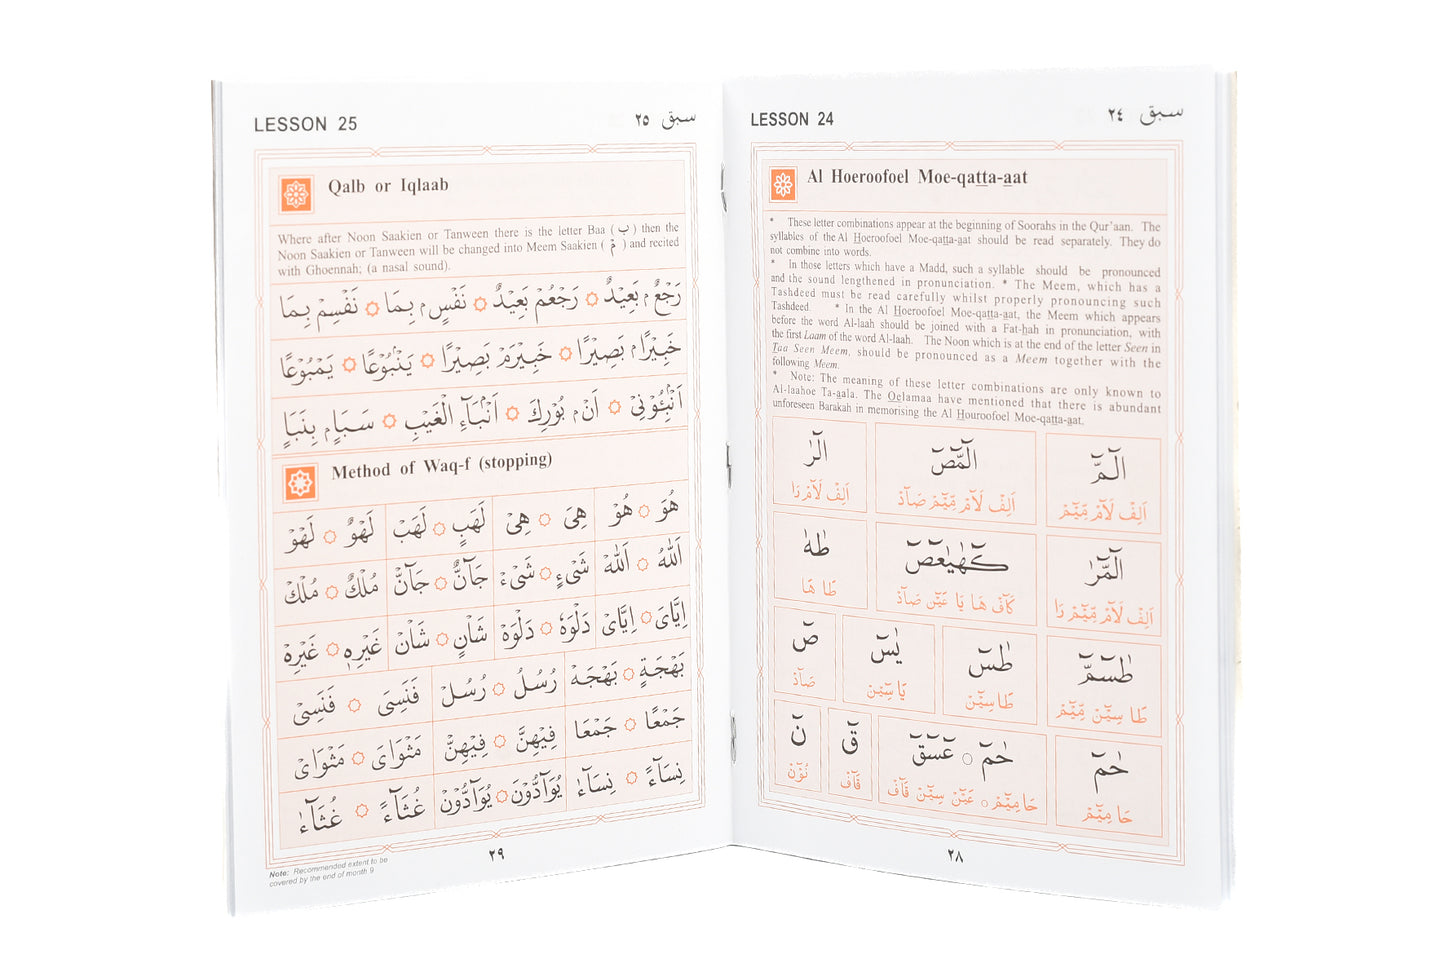 LESSON 24
سبق ٢٤
Al Hoeroofoel Moe-qatta-aat
* These letter combinations appear at the beginning of Soorahs in the Qur'aan. The
syllables of the Al Hoeroofoel Moe-qatta-aat should be read separately. They do
not combine into words.
* In those letters which have a Madd, such a syllable should be pronounced
and the sound lengthened in pronunciation. * The Meem, which has a
Tashdeed must be read carefully whilst properly pronouncing such
Tashdeed. * In the Al Hoeroofoel Moe-qatta-aat, the Meem which appears
before the word Al-laah should be joined with a Fat-hah in pronunciation, with
the first Laam of the word Al-laah. The Noon which is at the end of the letter Seen in
Taa Seen Meem, should be pronounced as a Meem together with the
following Meem.
* Note: The meaning of these letter combinations are only known to
Al-laahoe Ta-aala. The Oelamaa have mentioned that there is abundant
unforeseen Barakah in memorising the Al Houroofoel Moe-qatta-aat.
الٓمّٓ الٓمّٓصٓ الٓرٰ
اَلِفْ لَآمْ مِّيْٓمْ اَلِفْ لَآمْ مِّيْٓمْ صَآدْ اَلِفْ لَآمْ رَا
الٓمّٓرٰ كٓهٰيٰعٓصٓ طٰهٰ
اَلِفْ لَآمْ مِّيْٓمْ رَا كَآفْ هَا يَا عَيْٓنْ صَآدْ طَا هَا
طٰسٓمّٓ طٰسٓ يٰسٓ صٓ
طَا سِيْٓنْ مِّيْٓمْ طَا سِيْٓنْ يَا سِيْٓنْ صَآدْ
حٰمٓ حٰمٓ ۝ عٓسٓقٓ قٓ نٓ
حَا مِيْٓمْ حَا مِيْٓمْ ۝ عَيْٓنْ سِيْٓنْ قَآفْ قَآفْ نُوْٓنْ
٢٨
LESSON 25
سبق ٢٥
Qalb or Iqlaab
Where after Noon Saakien or Tanween there is the letter Baa ( ب ) then the
Noon Saakien or Tanween will be changed into Meem Saakien ( مْ ) and recited
with Ghoennah; (a nasal sound).
رَجْعٌ ۢ بَعِيْدٌ ۞ رَجْعُمْ بَعِيْدٌ ۞ نَفْسٍ ۢ بِمَا ۞ نَفْسِمْ بِمَا
خَبِيْرًا ۢ بَصِيْرًا ۞ خَبِيْرَمْ بَصِيْرًا ۞ يَنْۢبُوْعًا ۞ يَمْبُوْعًا
اَنْۢبِئُوْنِيْ ۞ اَنْ ۢ بُوْرِكَ ۞ اَنْۢبَآءِ الْغَيْبِ ۞ سَبَاٍ ۢ بِنَبَاٍ
Method of Waq-f (stopping)
هُوَ ۞ هُوْ هِىَ ۞ هِىْ لَهَبٍ ۞ لَهَبْ لَهْوٌ ۞ لَهْوْ
اَللّٰهُ ۞ اَللّٰهْ شَىْءٍ ۞ شَىْءْ جَآنٌّ ۞ جَآنّْ مُلْكٌ ۞ مُلْكْ
اِيَّاىَ ۞ اِيَّاىْ دَلْوَهٗ ۞ دَلْوَهْ شَاْنٍ ۞ شَاْنْ غَيْرِهٖ ۞ غَيْرِهْ
بَهْجَةٍ ۞ بَهْجَهْ رُسُلُ ۞ رُسُلْ فَنَسِىَ ۞ فَنَسِىْ
جَمْعًا ۞ جَمْعَا فِيْهِنَّ ۞ فِيْهِنّْ مَثْوَاىَ ۞ مَثْوَاىْ
نِسَآءً ۞ نِسَآءٰ يُوَآدُّوْنَ ۞ يُوَآدُّوْنْ غُثَآءً ۞ غُثَآءٰ
٢٩
Note: Recommended extent to be
covered by the end of month 9